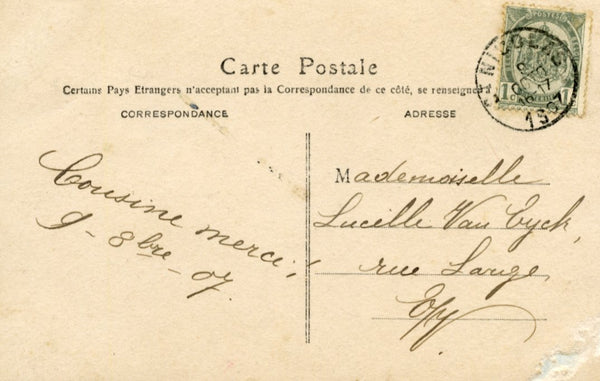 Carte Postale
Certains Pays Etrangers n'acceptant pas la Correspondance de ce côté, se renseigner
CORRESPONDANCE
ADRESSE
Cousine merci!
9 - 8bre - 07.
Mademoiselle
Lucille Van Eyck,
rue Large,
E/V
ST NICOLAS
1907
1 1